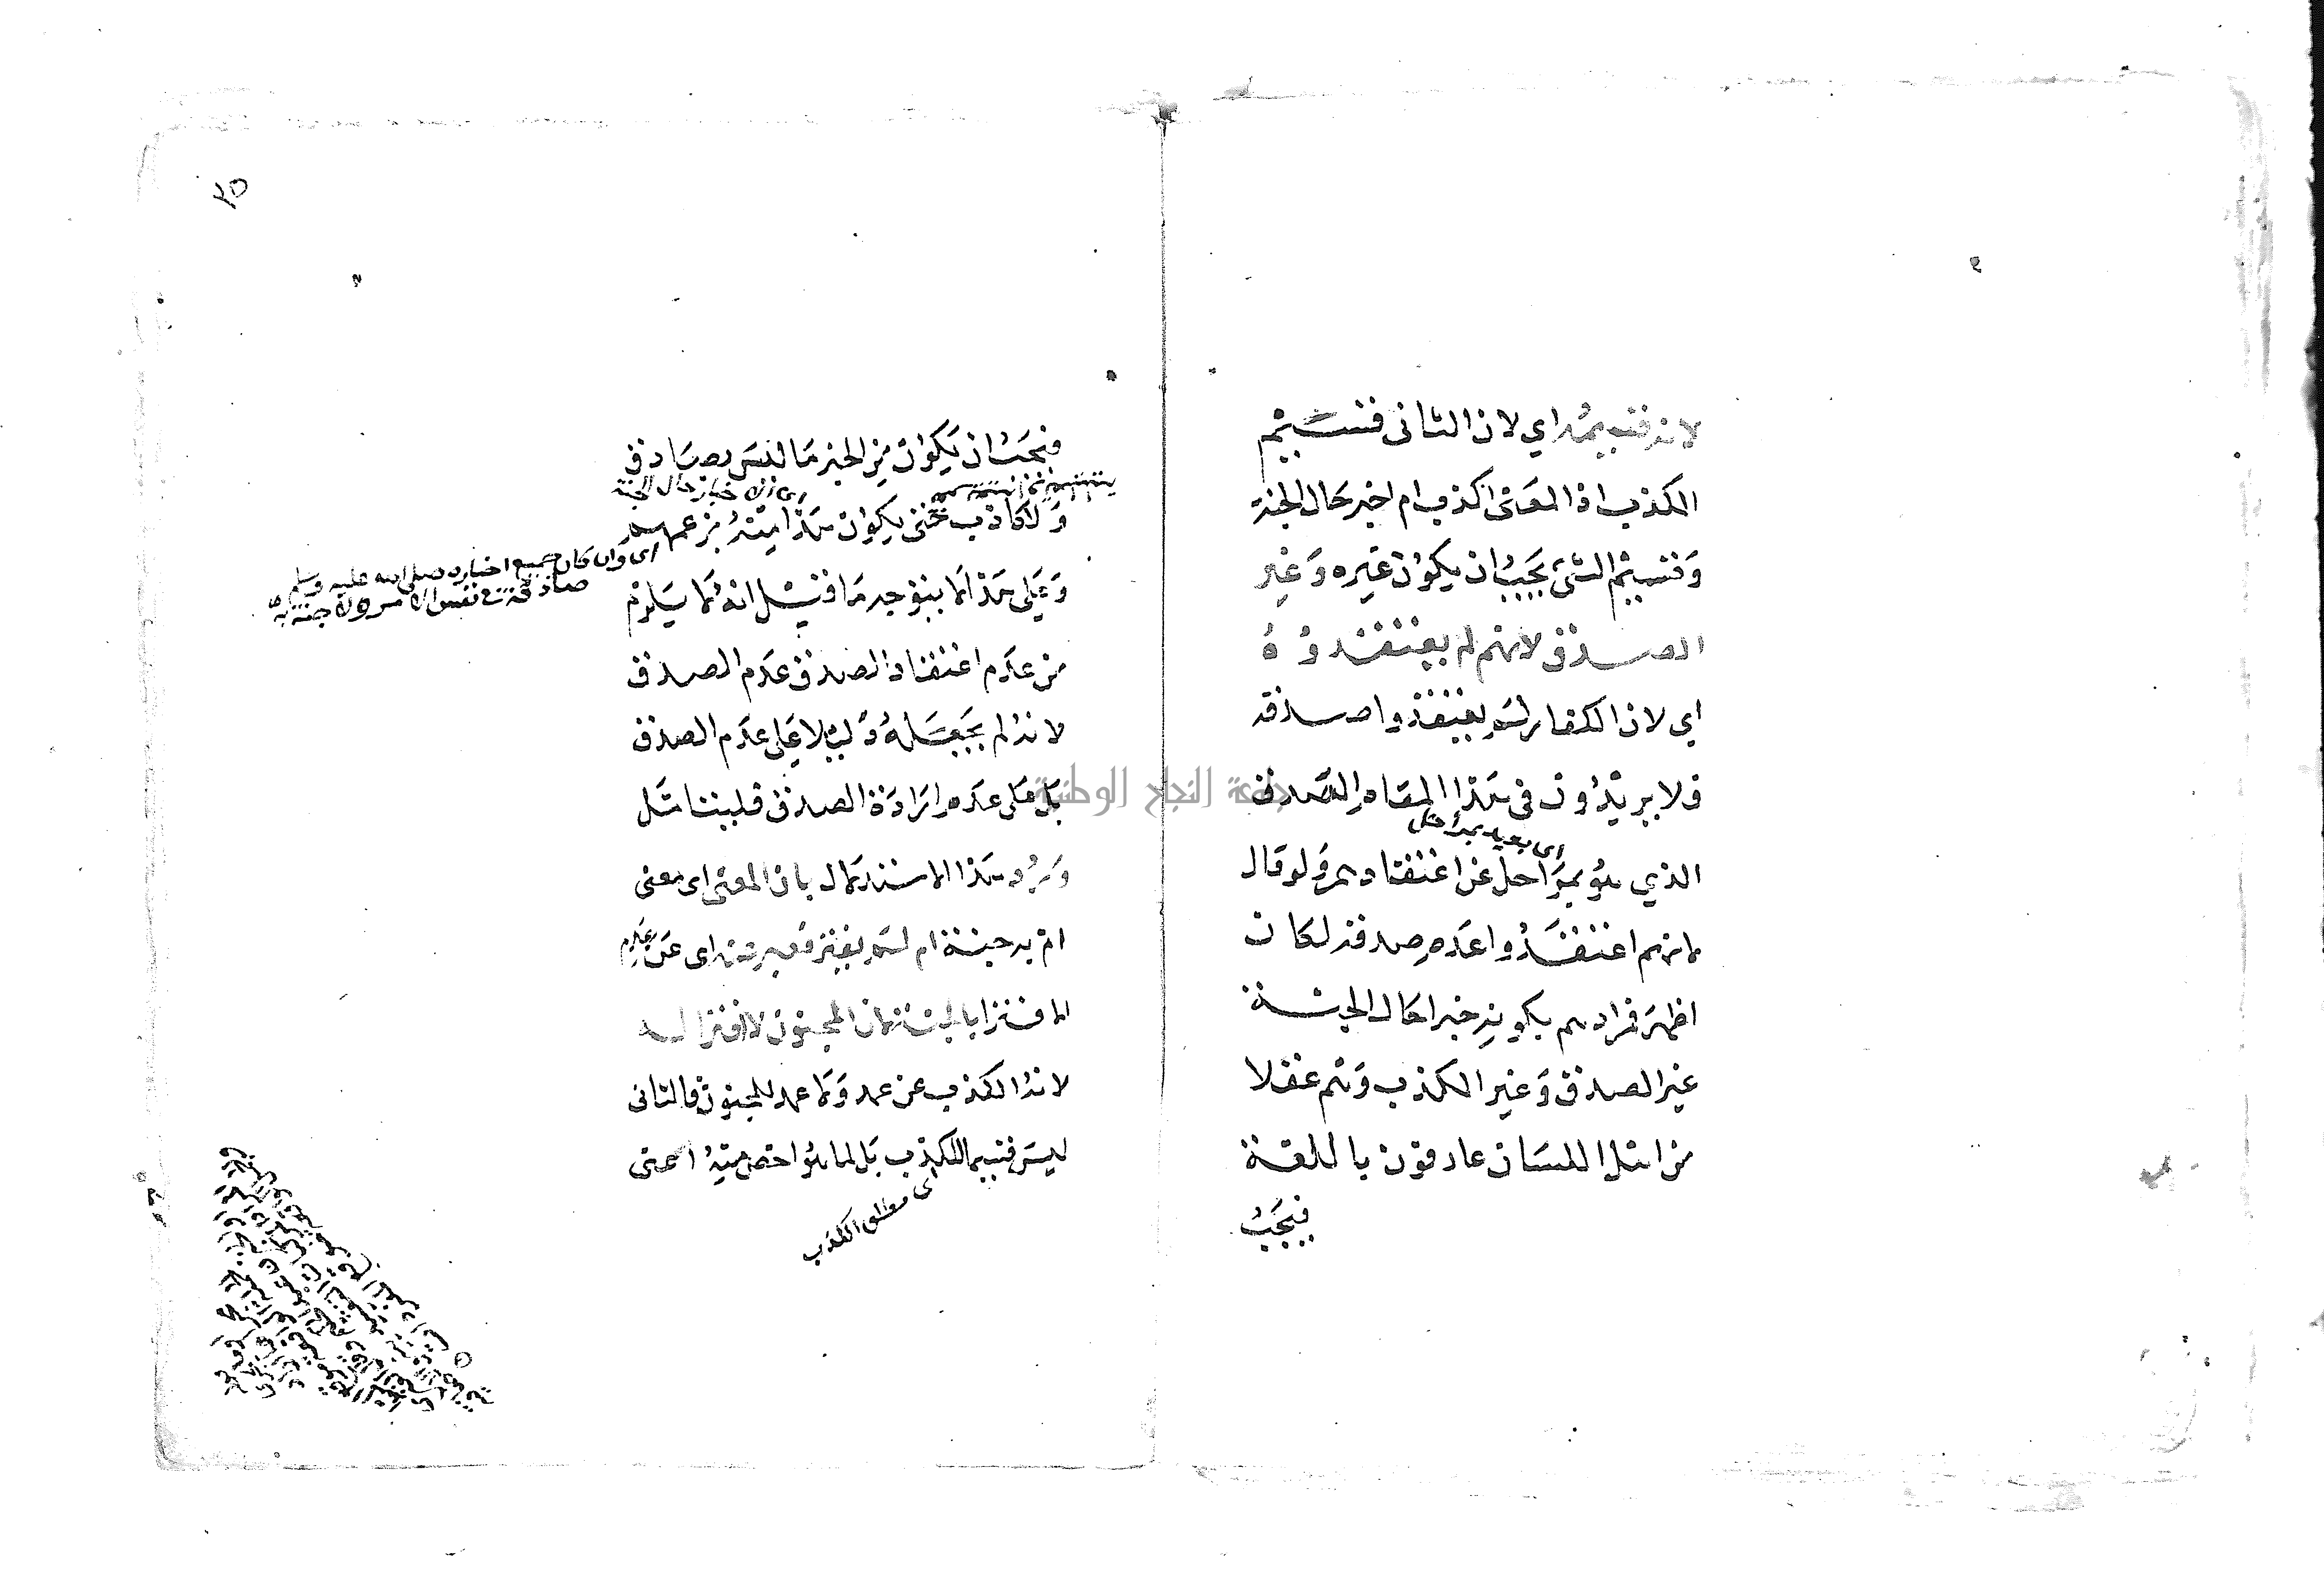 لانه قسيمه اي لان الثاني قسيم
الكذب اذ المعنى اكذب ام اخبر حال الجنة
وقسيم الشئ يجب ان يكون غيره وغير
الصدق لانهم لم يعتقدوه
اي لان الكفار لم يعتقدوا صدقه
فلا يريدون في هذا المقام الصدق
اى بعيد بمراحل
الذي هو بمراحل عن اعتقادهم ولو قال
لانهم اعتقدوا عدم صدقه لكان
اظهر فمرادهم بكونه خبرا حال الجنة
غير الصدق وغير الكذب وهم عقلا
من اهل اللسان عارفون باللغة
فيجب
٢٥
فيجب ان يكون من الخبر ما ليس بصادق
ولا كاذب حتى يكون هذا منه بزعمهم
اى وان كان جميع اخباره صلى الله عليه وسلم
صادقة في نفس الامر ولا جنة به
وعلى هذا لا يتوجه ما قيل انه لا يلزم
من عدم اعتقاد الصدق عدم الصدق
لانه لم يجعله دليلا على عدم الصدق
بل على عدم ارادة الصدق فليتامل
ورد هذا الاستدلال بان المعنى اى معنى
ام به جنة ام لم يفتر فعبر عنه اى عن عدم
الافترا بالجنة لان المجنون لا افترا له
لانه الكذب عن عمد ولا عمد للمجنون فالثانى
ليس قسيما للكذب بل لما هو اخص منه اعنى
اى مطلق الكذب
جامعة النجاح الوطنية